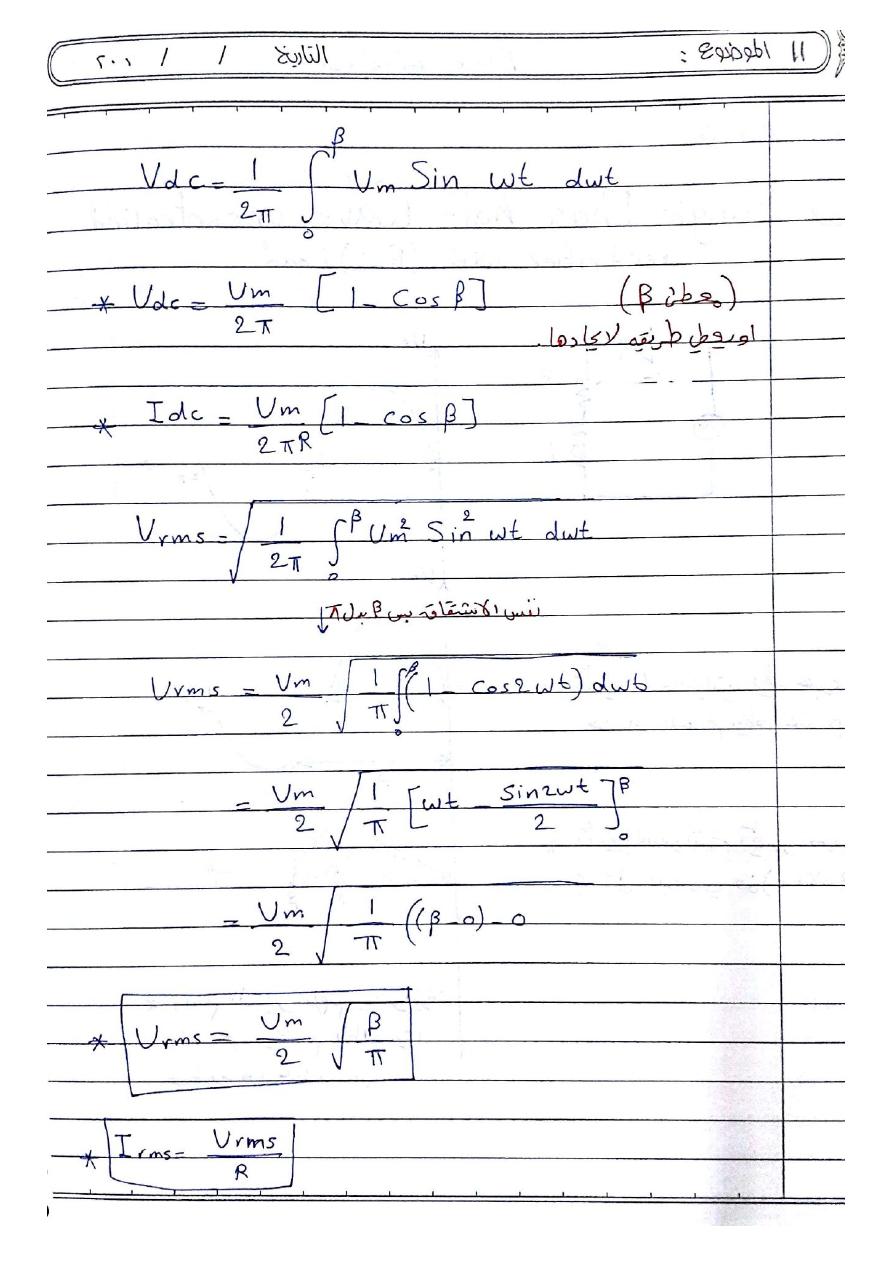 ١١ الموضوع : التاريخ / / ٢٠٠١
Vdc = 1/2π ∫₀^β Vm Sin wt dwt
* Vdc = Vm/2π [1 - Cos β] (معطى β)
او يعطي طريقه لايجادها.
* Idc = Vm/2πR [1 - cos β]
Vrms = √(1/2π ∫₀^β Vm² Sin² wt dwt)
نفس الاشتقاق بس β بدل π ↓
Vrms = Vm/2 √(1/π ∫₀^β (1 - cos2wt) dwt)
= Vm/2 √(1/π [wt - Sin2wt/2]₀^β)
= Vm/2 √(1/π ((β-0)-0
* Vrms = Vm/2 √(β/π)
* Irms = Vrms/R